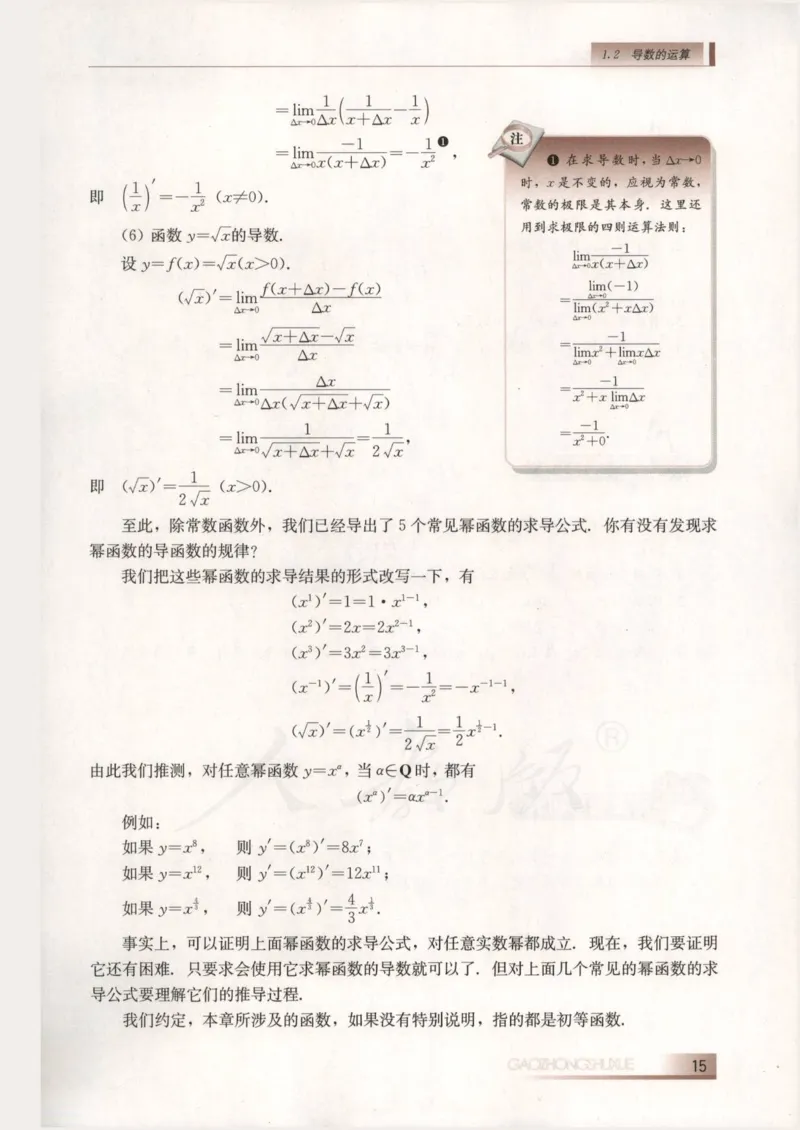 1.2 导数的运算
=lim_{Δx→0} \frac{1}{Δx}(\frac{1}{x+Δx}-\frac{1}{x})
=lim_{Δx→0} \frac{-1}{x(x+Δx)}=-\frac{1}{x²}❶,
即 (\frac{1}{x})′=-\frac{1}{x²} (x≠0).
(6) 函数 y=√x的导数.
设 y=f(x)=√x(x>0).
(√x)′=lim_{Δx→0} \frac{f(x+Δx)-f(x)}{Δx}
=lim_{Δx→0} \frac{√(x+Δx)-√x}{Δx}
=lim_{Δx→0} \frac{Δx}{Δx(√(x+Δx)+√x)}
=lim_{Δx→0} \frac{1}{√(x+Δx)+√x}=\frac{1}{2√x},
即 (√x)′=\frac{1}{2√x} (x>0).
注
❶ 在求导数时,当 Δx→0
时,x是不变的,应视为常数,
常数的极限是其本身. 这里还
用到求极限的四则运算法则:
lim_{Δx→0} \frac{-1}{x(x+Δx)}
=\frac{lim_{Δx→0}(-1)}{lim_{Δx→0}(x²+xΔx)}
=\frac{-1}{lim_{Δx→0}x²+lim_{Δx→0}xΔx}
=\frac{-1}{x²+x lim_{Δx→0}Δx}
=\frac{-1}{x²+0}.
至此,除常数函数外,我们已经导出了 5 个常见幂函数的求导公式. 你有没有发现求
幂函数的导函数的规律?
我们把这些幂函数的求导结果的形式改写一下,有
(x¹)′=1=1·x^{1-1},
(x²)′=2x=2x^{2-1},
(x³)′=3x²=3x^{3-1},
(x^{-1})′=(\frac{1}{x})′=-\frac{1}{x²}=-x^{-1-1},
(√x)′=(x^{\frac{1}{2}})′=\frac{1}{2√x}=\frac{1}{2}x^{\frac{1}{2}-1}.
由此我们推测,对任意幂函数 y=x^α,当 α∈Q时,都有
(x^α)′=αx^{α-1}.
例如:
如果 y=x⁸, 则 y′=(x⁸)′=8x⁷;
如果 y=x¹², 则 y′=(x¹²)′=12x¹¹;
如果 y=x^{\frac{4}{3}}, 则 y′=(x^{\frac{4}{3}})′=\frac{4}{3}x^{\frac{1}{3}}.
事实上,可以证明上面幂函数的求导公式,对任意实数幂都成立. 现在,我们要证明
它还有困难. 只要求会使用它求幂函数的导数就可以了. 但对上面几个常见的幂函数的求
导公式要理解它们的推导过程.
我们约定,本章所涉及的函数,如果没有特别说明,指的都是初等函数.
GAOZHONGSHUXUE
15